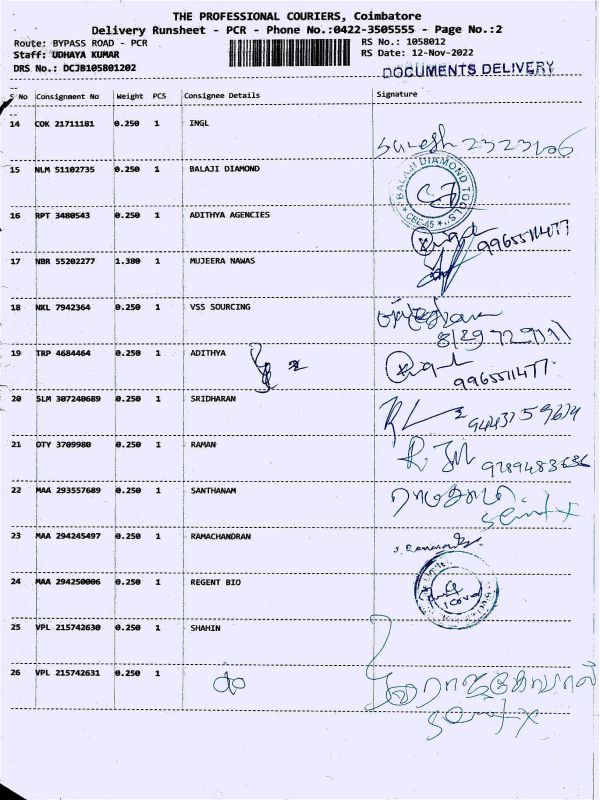 THE PROFESSIONAL COURIERS, Coimbatore
Delivery Runsheet - PCR - Phone No.:0422-3505555 - Page No.:2
Route: BYPASS ROAD - PCR
RS No.: 1058012
Staff: UDHAYA KUMAR
RS Date: 12-Nov-2022
DRS No.: DCJB105801202
DOCUMENTS DELIVERY
S No Consignment No Weight PCS Consignee Details Signature
14 COK 21711181 0.250 1 INGL
Suresh
15 NLM 51102735 0.250 1 BALAJI DIAMOND
BALAJI DIAMOND TOOLS
CBE-45
16 RPT 3480543 0.250 1 ADITHYA AGENCIES
9965511477
17 NBR 55202277 1.380 1 MUJEERA NAWAS
18 NKL 7942364 0.250 1 VSS SOURCING
19 TRP 4684464 0.250 1 ADITHYA
9965511477
20 SLM 307240689 0.250 1 SRIDHARAN
21 OTY 3709980 0.250 1 RAMAN
22 MAA 293557689 0.250 1 SANTHANAM
23 MAA 294245497 0.250 1 RAMACHANDRAN
24 MAA 294250006 0.250 1 REGENT BIO
25 VPL 215742630 0.250 1 SHAHIN
26 VPL 215742631 0.250 1